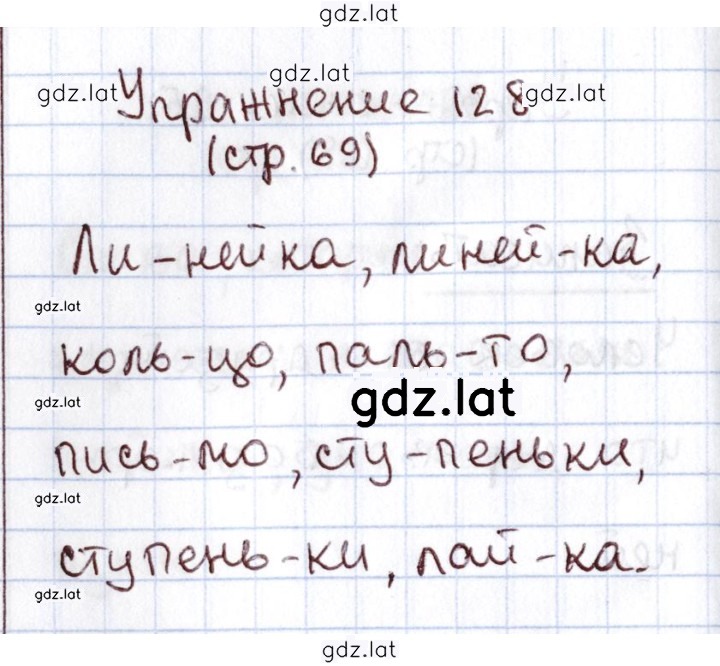 gdz.lat
gdz.lat
gdz.lat Упражнение 128 gdz.lat
(стр. 69)
Ли-нейка, линей-ка,
gdz.lat
коль-цо, паль-то,
gdz.lat
gdz.lat
пись-мо, сту-пеньки,
gdz.lat
ступень-ки, лай-ка.
gdz.lat
gdz.lat